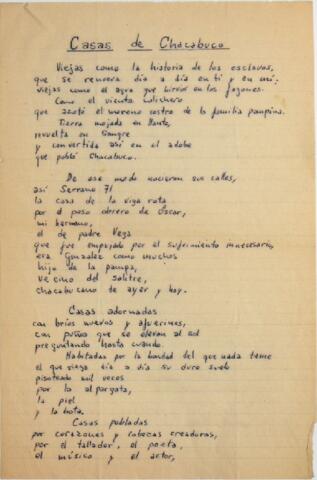 Casas de Chacabuco
Viejas como la historia de los esclavos,
que se renueva día a día en ti y en mi.
viejas como el agua que hirvió en los fogones.
Como el viento calichero
que azotó el moreno rostro de la familia pampina.
Tierra mojada en llanto,
revuelta en sangre
y convertida así en el adobe
que pobló Chacabuco.
De ese modo nacieron sus calles,
así Serrano 71
la casa de la viga rota
por el peso obrero de Oscar,
mi hermano,
el de padre Vega
que fue empujado por el sufrimiento innecesario,
era González como muchos
hijo de la pampa,
vecino del salitre,
chacabucano de ayer y hoy.
Casas adornadas
con bríos nuevos y
con puños que se elevan al sol
preguntando hasta cuando.
Habitadas por la bondad del que nada teme
el que riega día a día su duro suelo
pisoteado mil veces
por la alpargata,
la piel
y la bota.
Casas pobladas
por corazones y cabezas creadoras,
por el tallador, el poeta,
el músico y el actor,